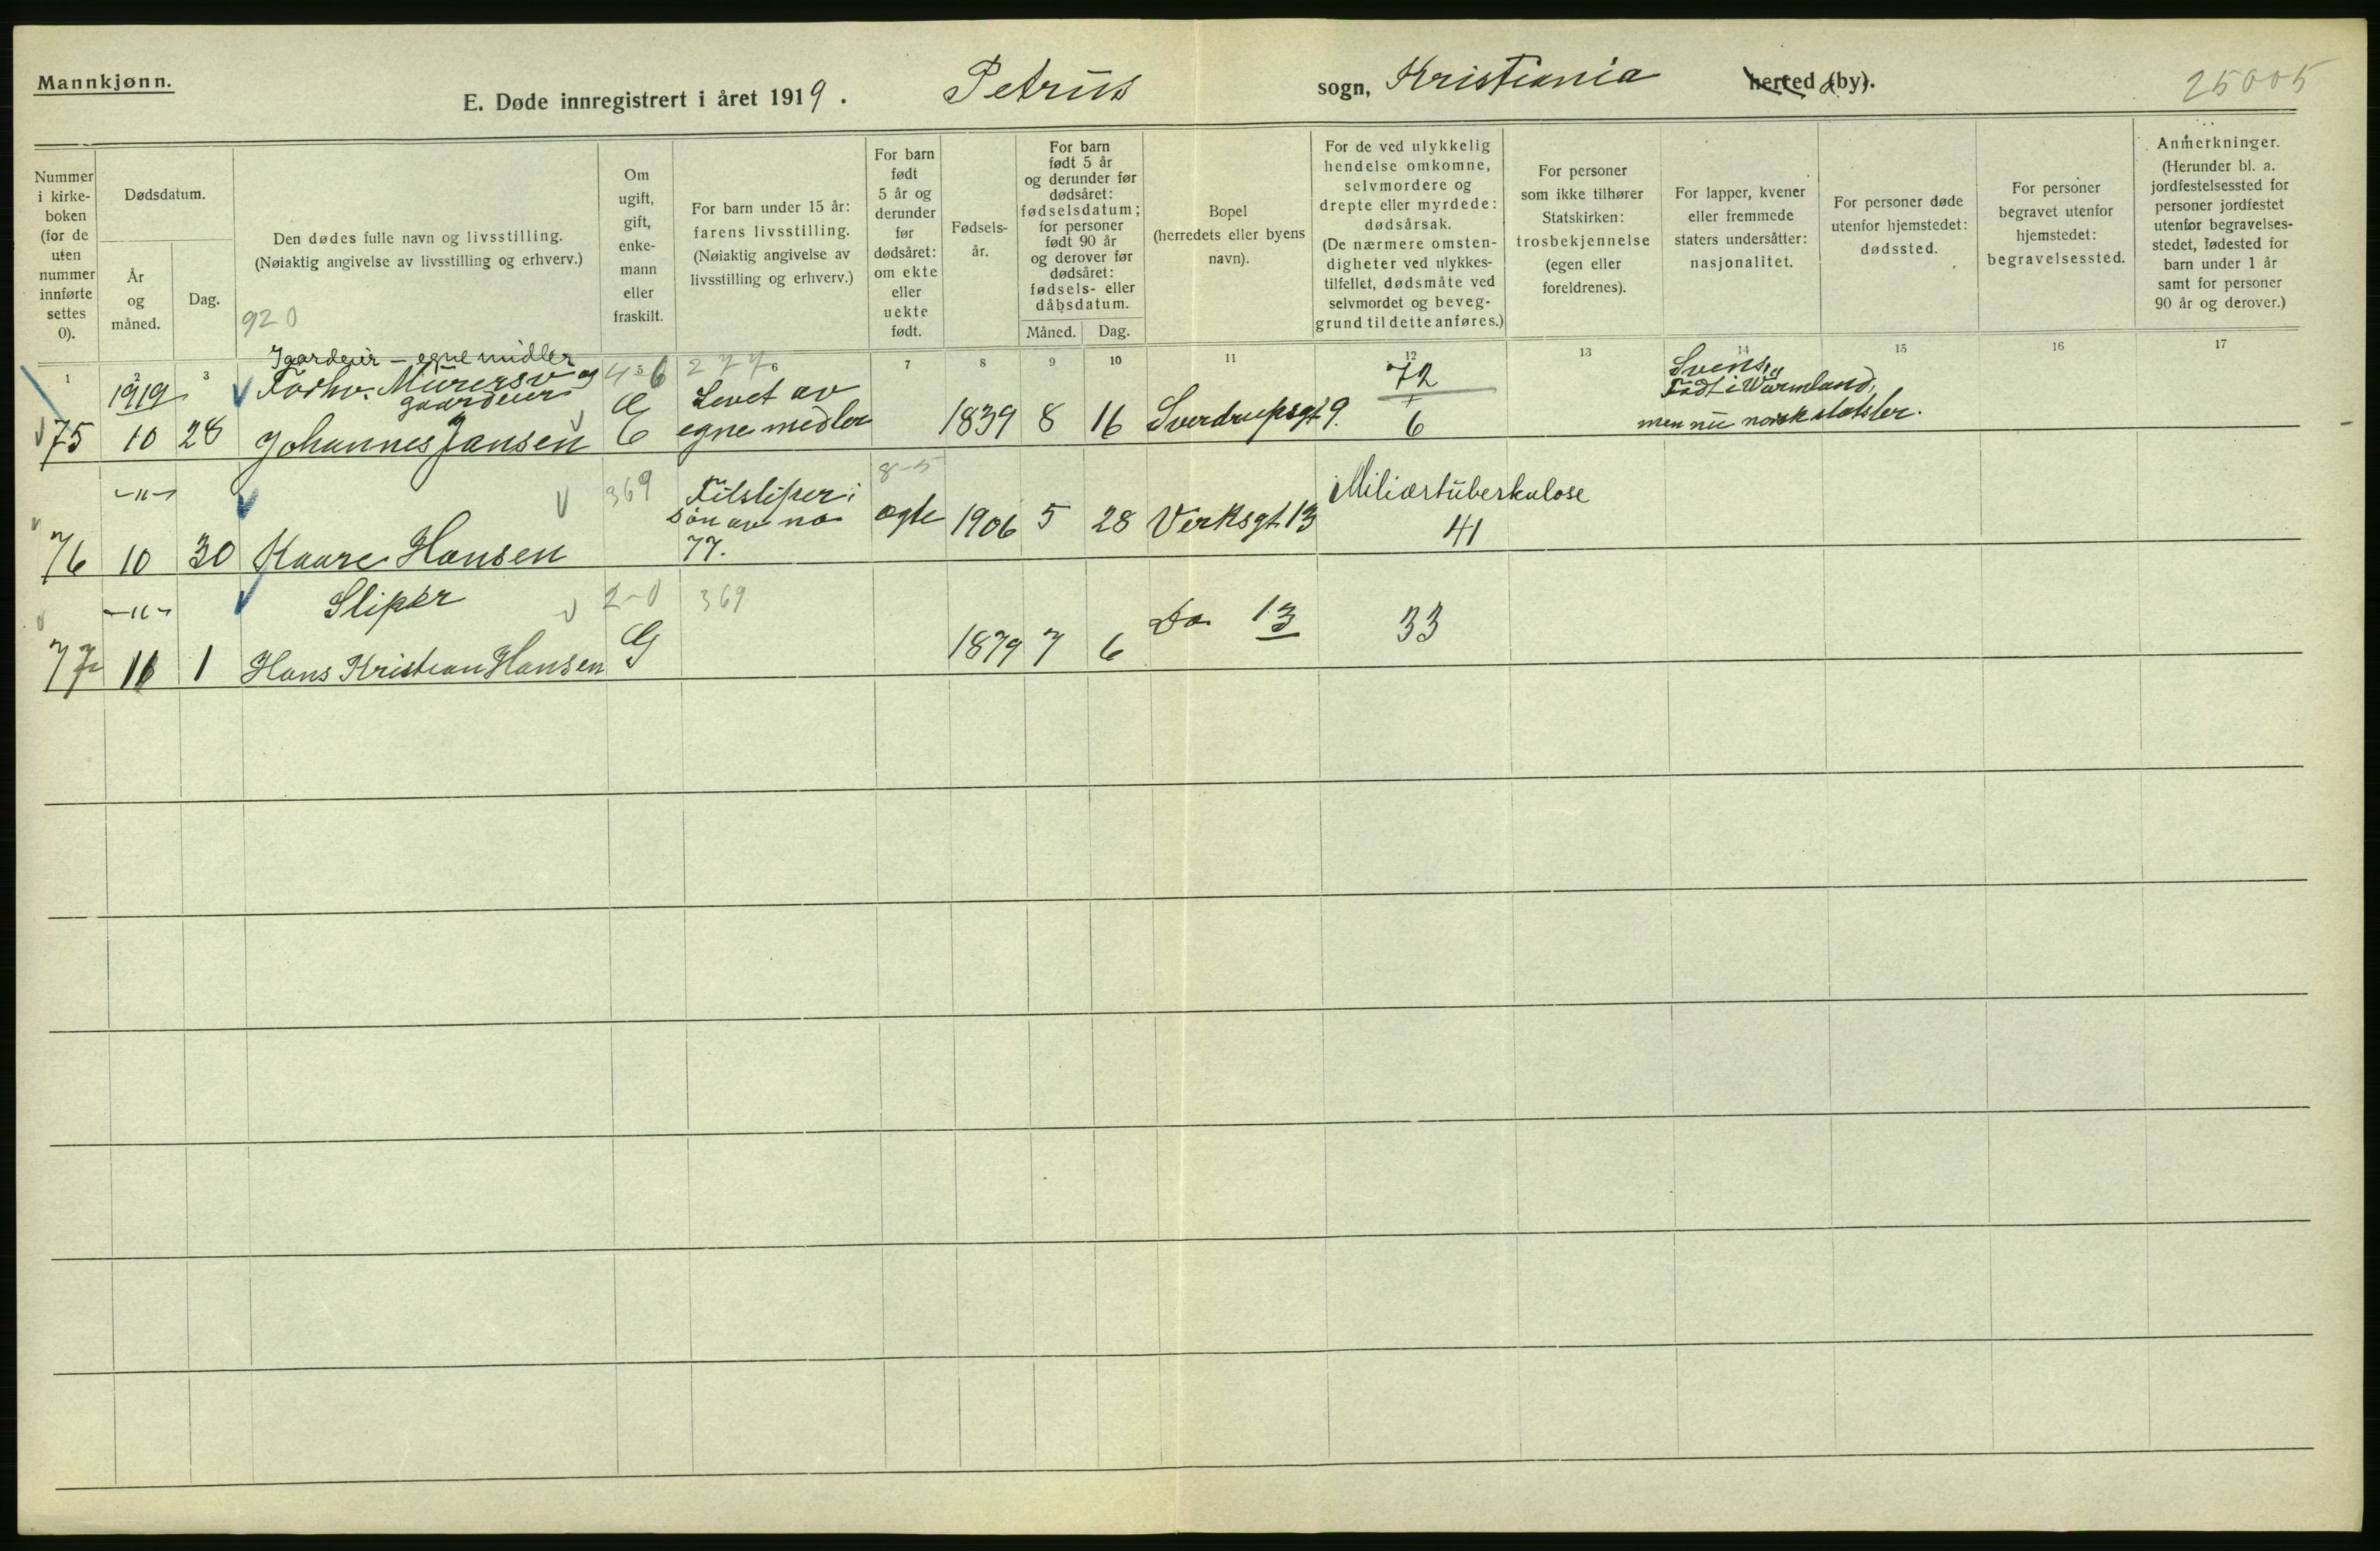 Mannkjønn.
E. Døde innregistrert i året 1919. Petrus sogn, Kristiania herred (by).
25005
Nummer i kirke-boken (for de uten nummer innførte settes 0).
Dødsdatum.
År og måned.
Dag.
Den dødes fulle navn og livsstilling.
(Nøiaktig angivelse av livsstilling og erhverv.)
920
Om ugift, gift, enke-mann eller fraskilt.
For barn under 15 år: farens livsstilling.
(Nøiaktig angivelse av livsstilling og erhverv.)
For barn født 5 år og derunder før dødsåret: om ekte eller uekte født.
Fødsels-år.
For barn født 5 år og derunder før dødsåret: fødselsdatum; for personer født 90 år og derover før dødsåret: fødsels- eller dåbsdatum.
Måned. Dag.
Bopel
(herredets eller byens navn).
For de ved ulykkelig hendelse omkomne, selvmordere og drepte eller myrdede: dødsårsak.
(De nærmere omsten-digheter ved ulykkes-tilfellet, dødsmåte ved selvmordet og beveg-grund til dette anføres.)
For personer som ikke tilhører Statskirken: trosbekjennelse (egen eller foreldrenes).
For lapper, kvener eller fremmede staters undersåtter: nasjonalitet.
For personer døde utenfor hjemstedet: dødssted.
For personer begravet utenfor hjemstedet: begravelsessted.
Anmerkninger.
(Herunder bl. a. jordfestelsessted for personer jordfestet utenfor begravelses-stedet, fødested for barn under 1 år samt for personer 90 år og derover.)
1 2 3 5 6 7 8 9 10 11 12 13 14 15 16 17
Igaardeier - egne midler
1919 Forhv. Murersv og gaardeier 4 6 277 Levet av 72 Svensk,
Født i Wärmland,
75 10 28 Johannes Jansen G egne medler 1839 8 16 Sverdrupsgt 9. 6 men nu norsk statsbr.
-"- 369 Filsliper i 8-5 Miliærtuberkulose
søn av no ægte 1906 5 28 Verksgt. 13 41
76 10 30 Kaare Hansen 77.
-"- Sliper 2-0 369 Do 13 33
77 11 1 Hans Kristian Hansen G 1879 7 6